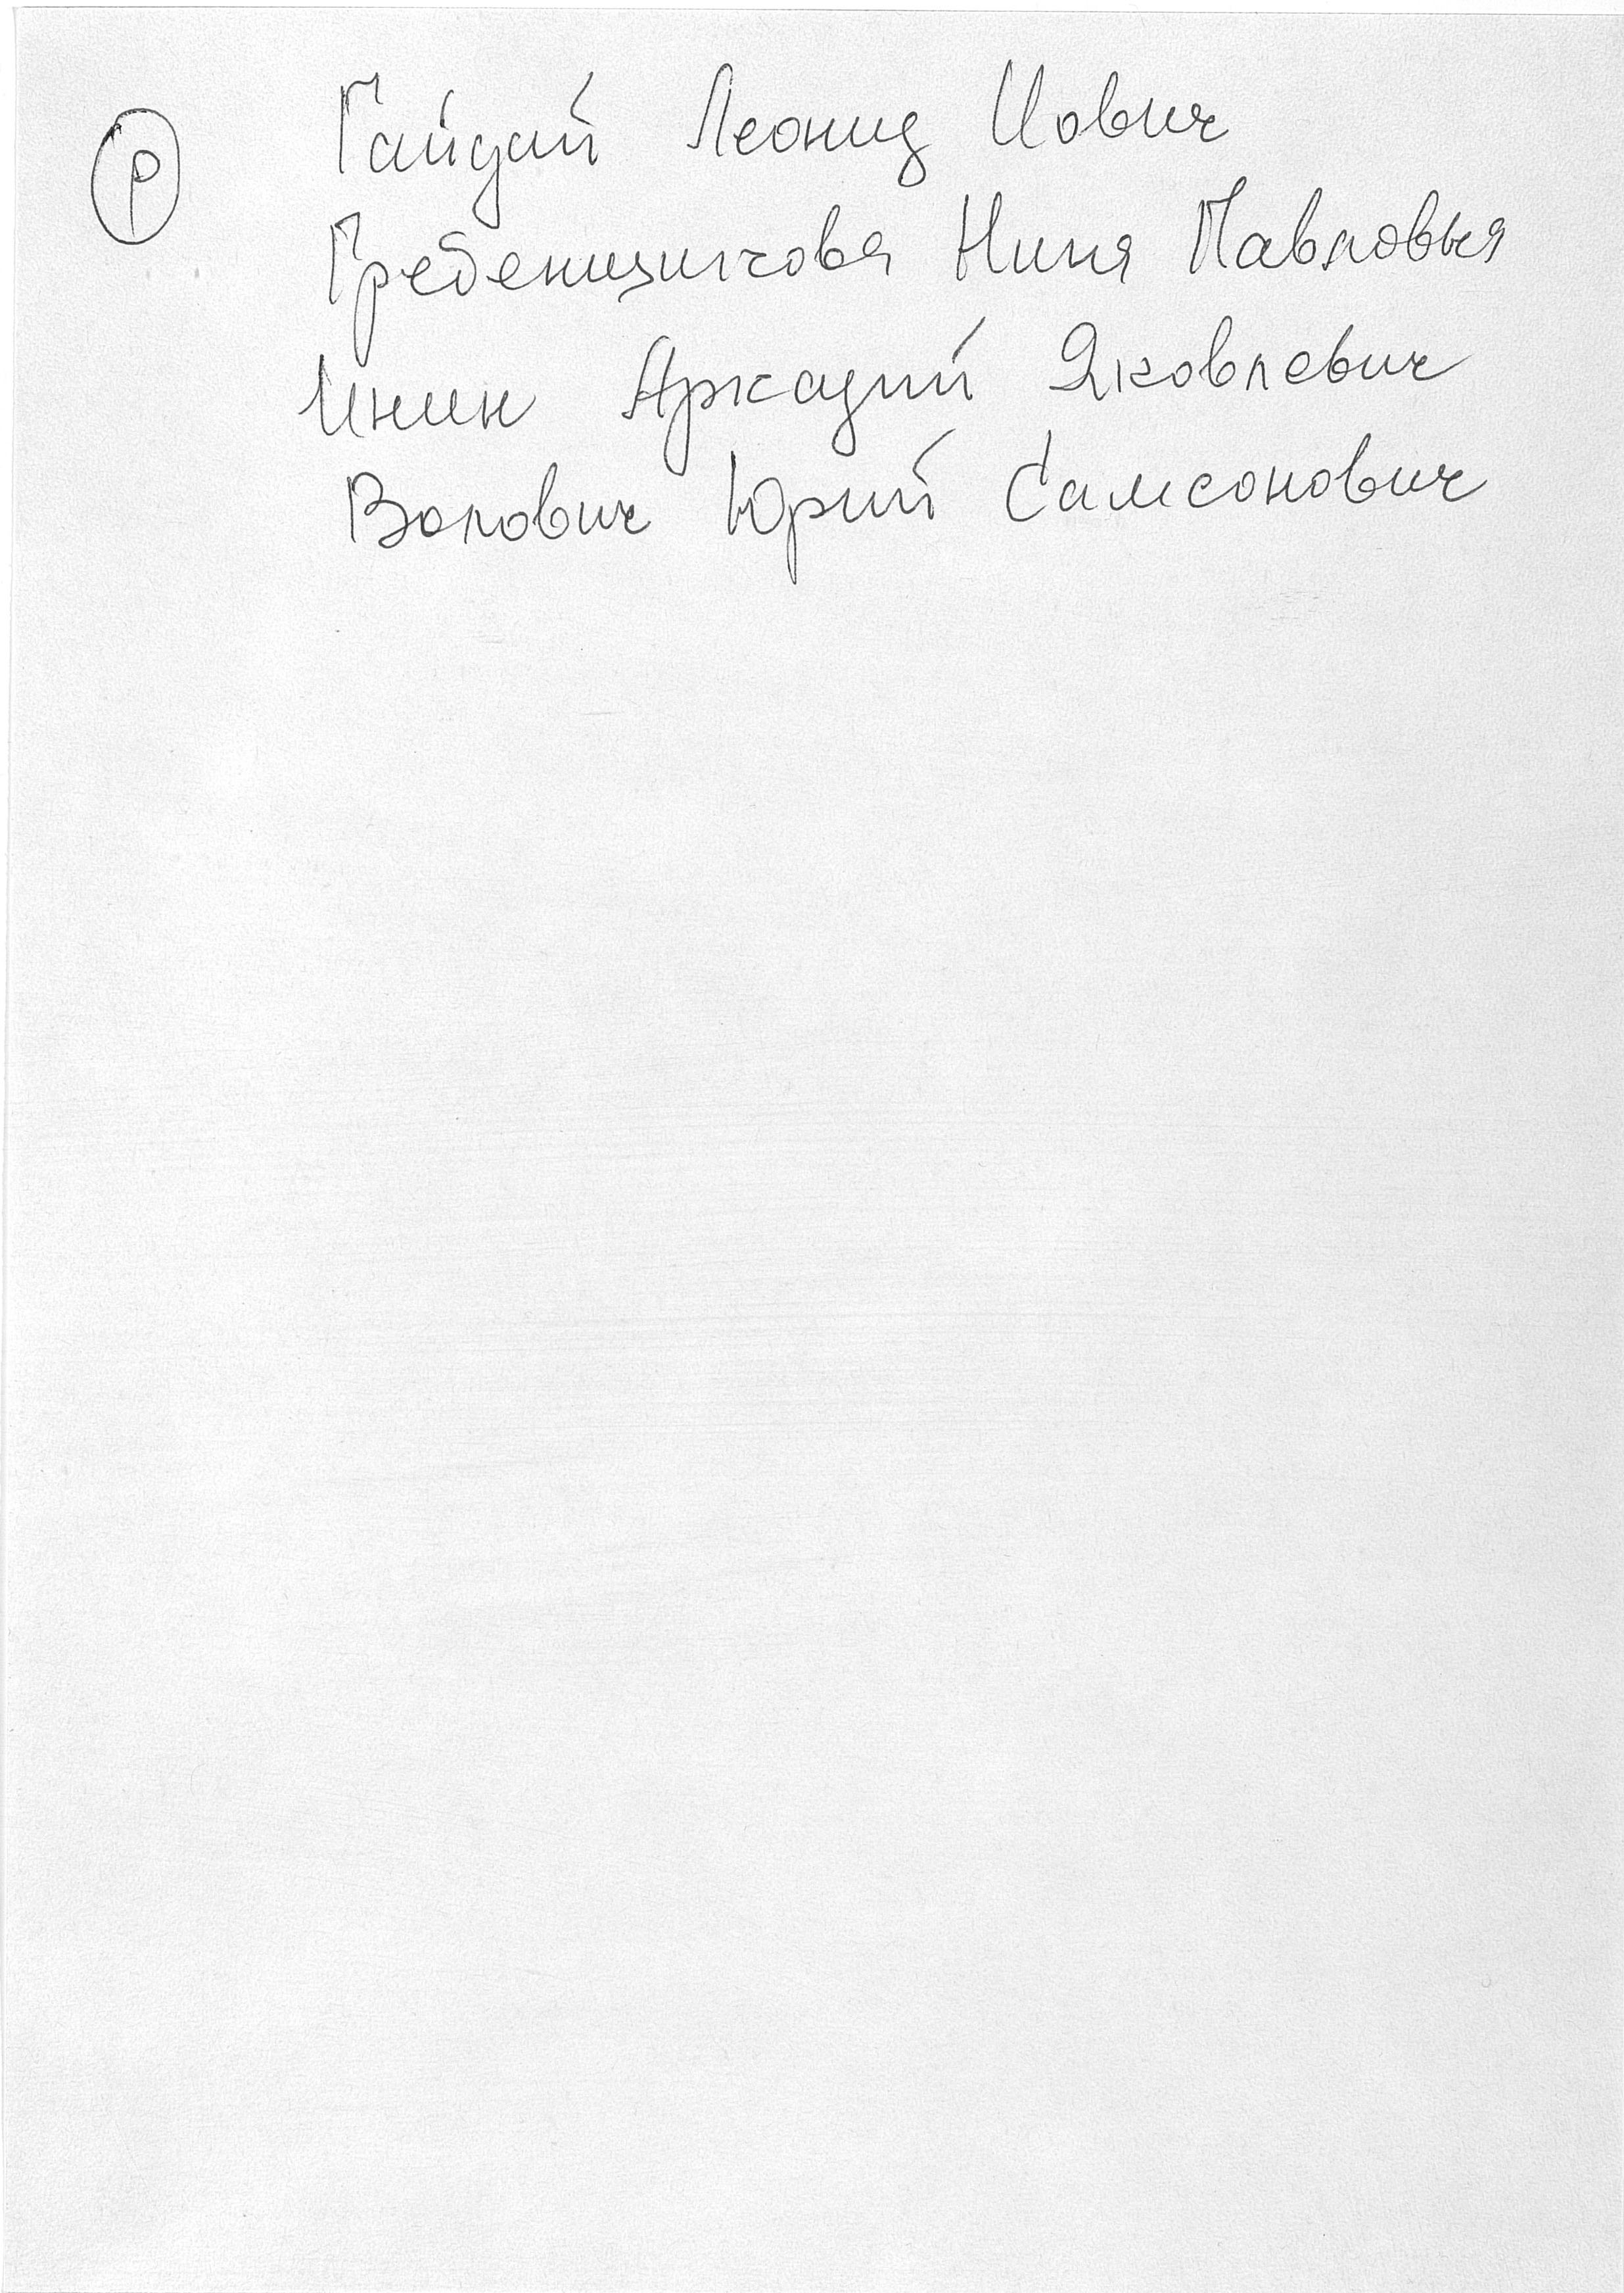 Р Гайдай Леонид Иович
Гребенщикова Нина Павловна
Инин Аркадий Яковлевич
Волович Юрий Самсонович